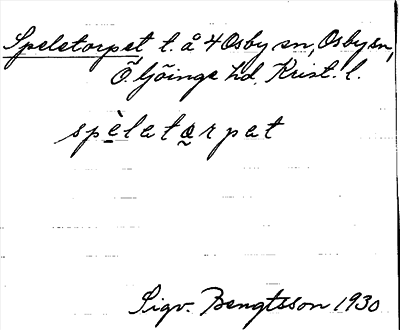 Speletorpet t. å 4 Osby sn, Osby sn,
Ö. Göinge hd, Krist. l.
spèletårpet
Sigv. Bengtsson 1930